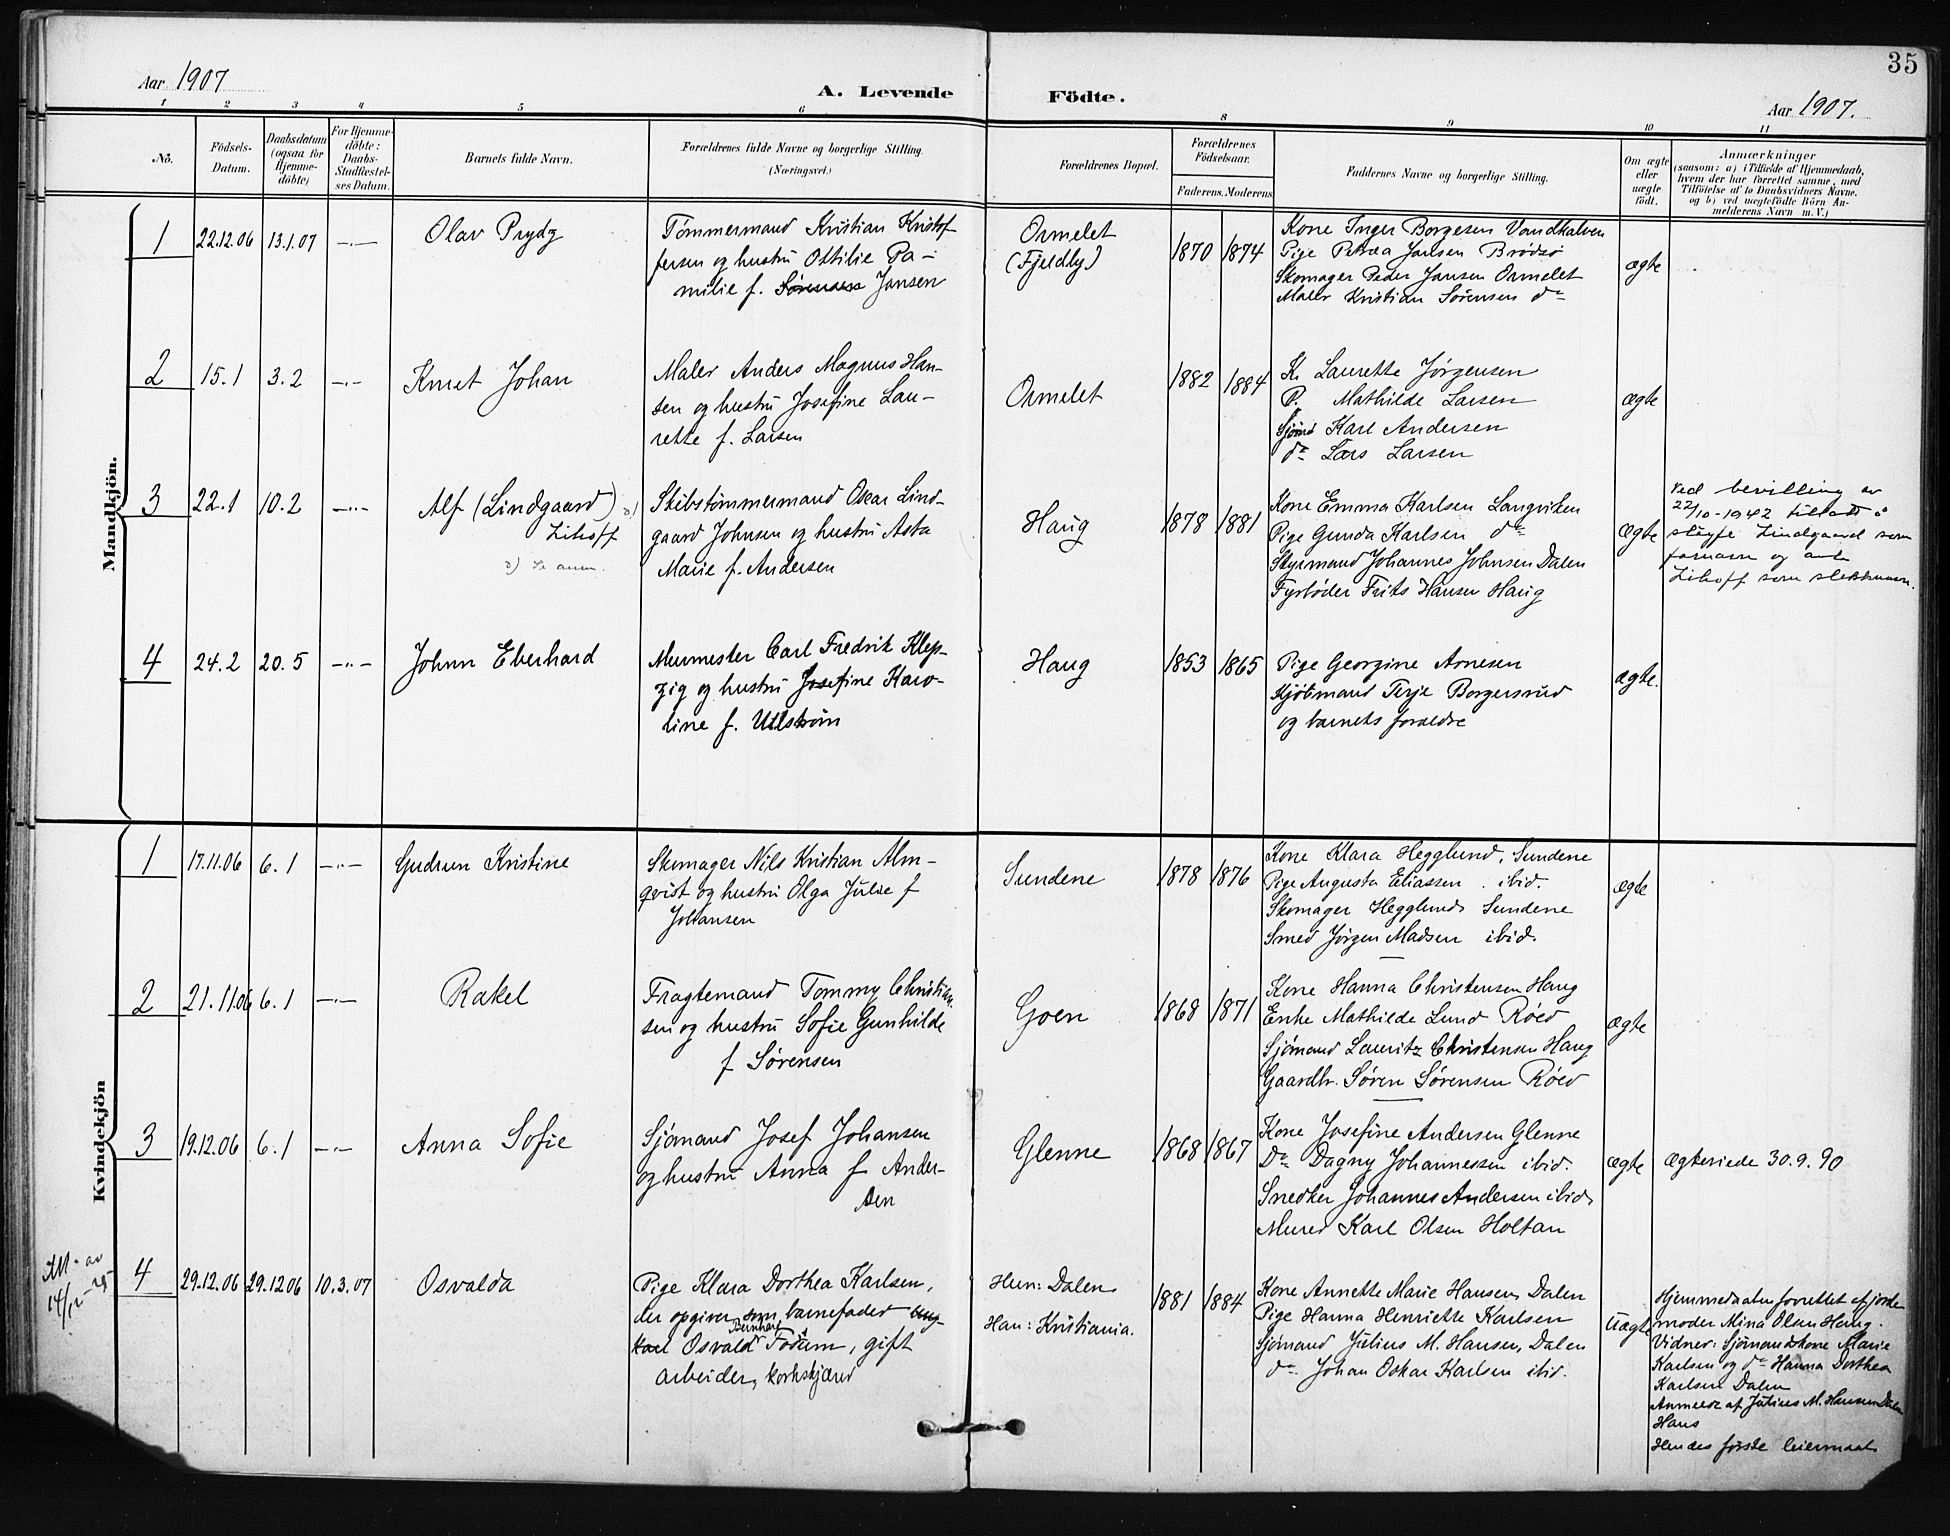 35
Aar 1907
A. Levende Födte.
Aar 1907.
1 2 3 4 5 6 8 9 10 11
Nö.
Födsels-
Datum.
Daabsdatum
(ogsaa for
Hjemme-
döbte)
For Hjemme-
döbte:
Daabs-
Stadfæstel-
ses Datum.
Barnets fulde Navn.
Forældrenes fulde Navne og borgerlige Stilling.
(Næringsvei.)
Forældrenes Bopæl.
Forældrenes
Födselsaar.
Faderens. Moderens
Faddernes Navne og borgerlige Stilling.
Om ægte
eller
uægte
födt.
Anmærkninger
(saasom: a) i Tilfælde af Hjemmedaab,
hvem der har forrettet samme, med
Tilföielse af to Daabsvidners Navne.
og b) ved uægtefödte Börn An-
melderens Navn m. V.)
Mandkjön.
1
22.12.06
13.1.07
—"—
Olav Prydz
Tømmermand Kristian Kristof
fersen og hustru Ottilie Pa-
milie f. Sørensen Jansen
Ormelet
(Fjeldly)
1870
1874
Kone Inger Borgesen Vandkalven
Pige Petrea Jansen Brødsø
Skomager Peder Jansen Ormelet
Maler Kristian Sørensen do
ægte
2
15.1
3.2
—"—
Knut Johan
Maler Anders Magnus Han-
sen og hustru Josefine Lau-
rette f. Larsen
Ormelet
1882
1884
K. Laurette Jørgensen
P. Mathilde Larsen
Sjømd Karl Andersen
do Lars Larsen
ægte
3
22.1
10.2
—"—
Alf (Lindgaard) a)
Lihoff
a) Se anm.
Skibstømmermand Oscar Lind-
gaard Johnsen og hustru Asta
Marie f. Andersen
Haug
1878
1881
Kone Emma Karlsen Langviken
Pige Gunda Karlsen do
Styrmand Johannes Johnsen Dalen
Fyrbøder Frits Hansen Haug
ægte
Ved bevilling av
22/10-1942 tillatt å
sløyfe Lindgaard som
fornavn og anta
Lihoff som slektsnavn.
4
24.2
20.5
—"—
Johnn Eberhard
Murmester Carl Fredrik Klep-
zig og hustru Josefine Karo-
line f. Ullstrøm
Haug
1853
1865
Pige Georgine Arnesen
Kjøbmand Terje Borgersrud
og barnets forældre
ægte.
Kvindekjön
1
17.11.06
6.1
—"—
Gudrun Kristine
Skomager Nils Kristian Alm-
qvist og hustru Olga Julie f
Johansen
Sundene
1878
1876
Kone Klara Hegglund, Sundene
Pige Augusta Eliassen . ibid.
Skomager Hegglund Sundene
Smed Jørgen Madsen ibid.
ægte
2
21.11.06
6.1
—"—
Rakel
Fragtemand Tommy Christian
sen og hustru Sofie Gunhilde
f Sørensen
Goen
1868
1871
Kone Hanna Christensen Haug
Enke Mathilde Lund Røed
Sjømand Lauritz Christensen Haug
Gaardbr. Søren Sørensen Røed
ægte
3
19.12.06
6.1
—"—
Anna Sofie
Sjømand Josef Johansen
og hustru Anna f Ander-
sen
Glenne
1868
1867
Kone Josefine Andersen Glenne
Do Dagny Johannessen ibid.
Snedker Johannes Andersen ibid.
Murer Karl Olsen Holtan
ægte
Ægteviede 30.9.90
Att. av
14/12-25
4
29.12.06
29.12.06
10.3.07
Osvalda
Pige Klara Dorthea Karlsen,
der opgiver som barnefader
Bernhard
Osvald Fodum, gift
arbeider, korkskjærer
Hun: Dalen
Han: Kristiania.
1881
1884
Kone Annette Marie Hansen, Dalen
Pige Hanna Henriette Karlsen
Sjømand Julius M. Hansen, Dalen
do. Johan Oskar Karlsen ibid.
Uægte
Hjemmedaaben forrettet af jorde
moder Mina Olsen Haug.
Vidner: Sjømandskone Marie
Karlsen og do Hanna Dorthea
Karlsen Dalen
Anmeldt af Julius M. Hansen Dalen
Hans
Hendes første leiermaal